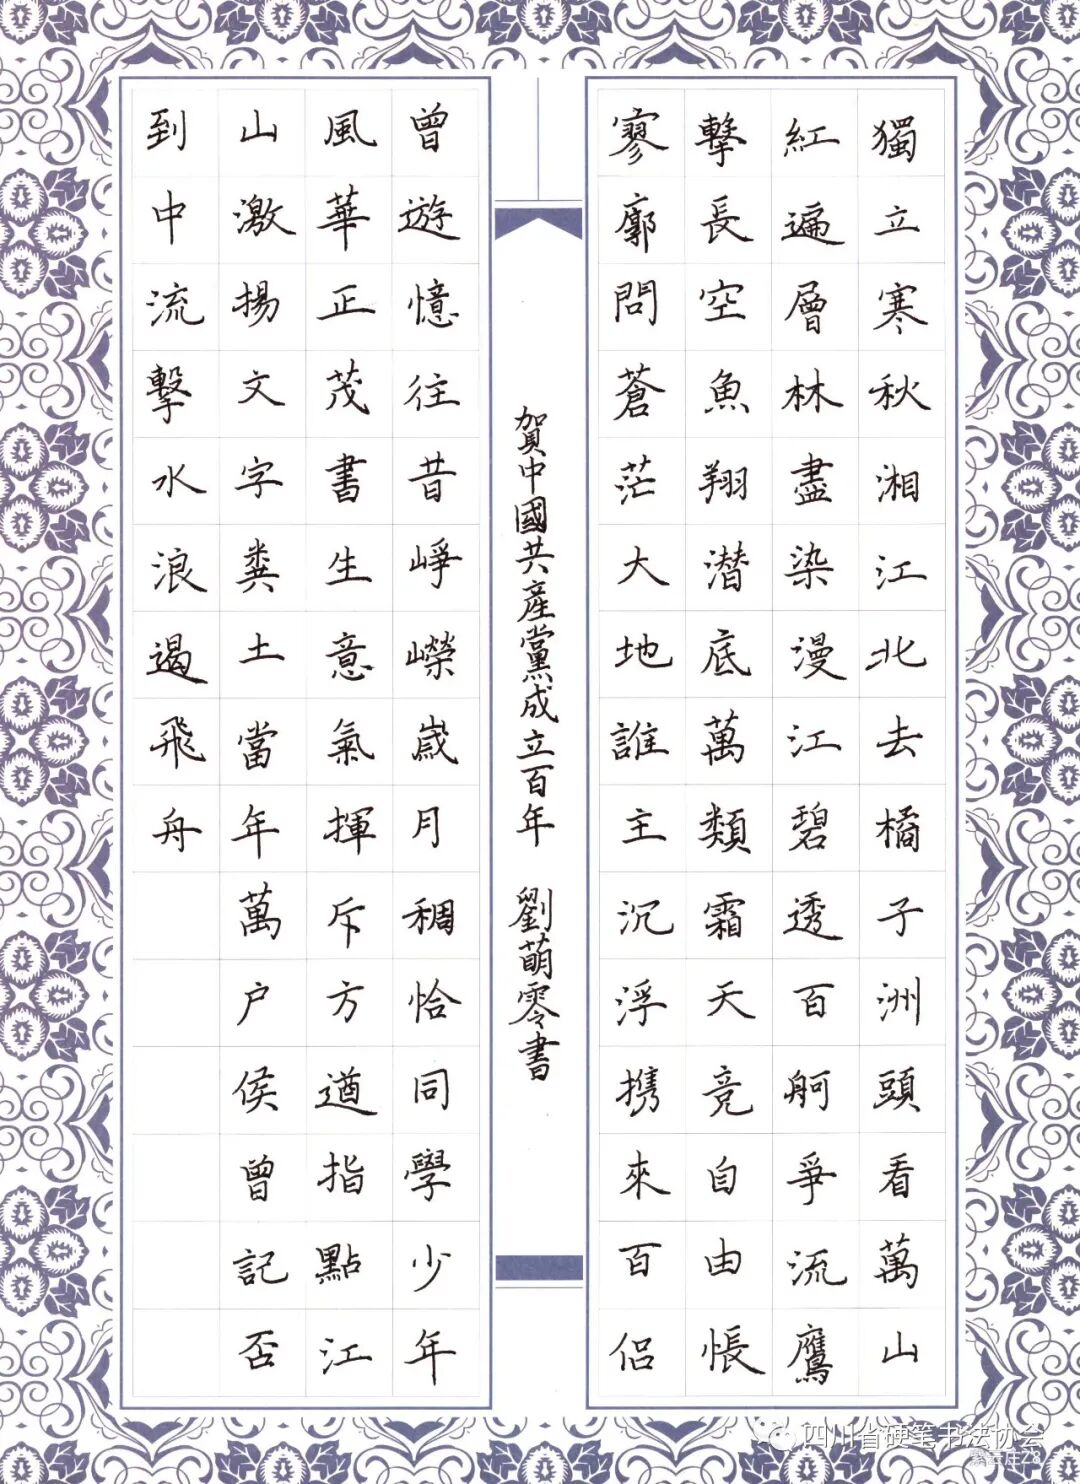 獨立寒秋湘江北去橘子洲頭看萬山
紅遍層林盡染漫江碧透百舸爭流鷹
擊長空魚翔潛底萬類霜天競自由悵
寥廓問蒼茫大地誰主沉浮携來百侣
賀中國共產黨成立百年 劉萌零書
曾遊憶往昔崢嶸歲月稠恰同學少年
風華正茂書生意氣揮斥方遒指點江
山激揚文字糞土當年萬户侯曾記否
到中流擊水浪遏飛舟
四川省硬笔书法协会